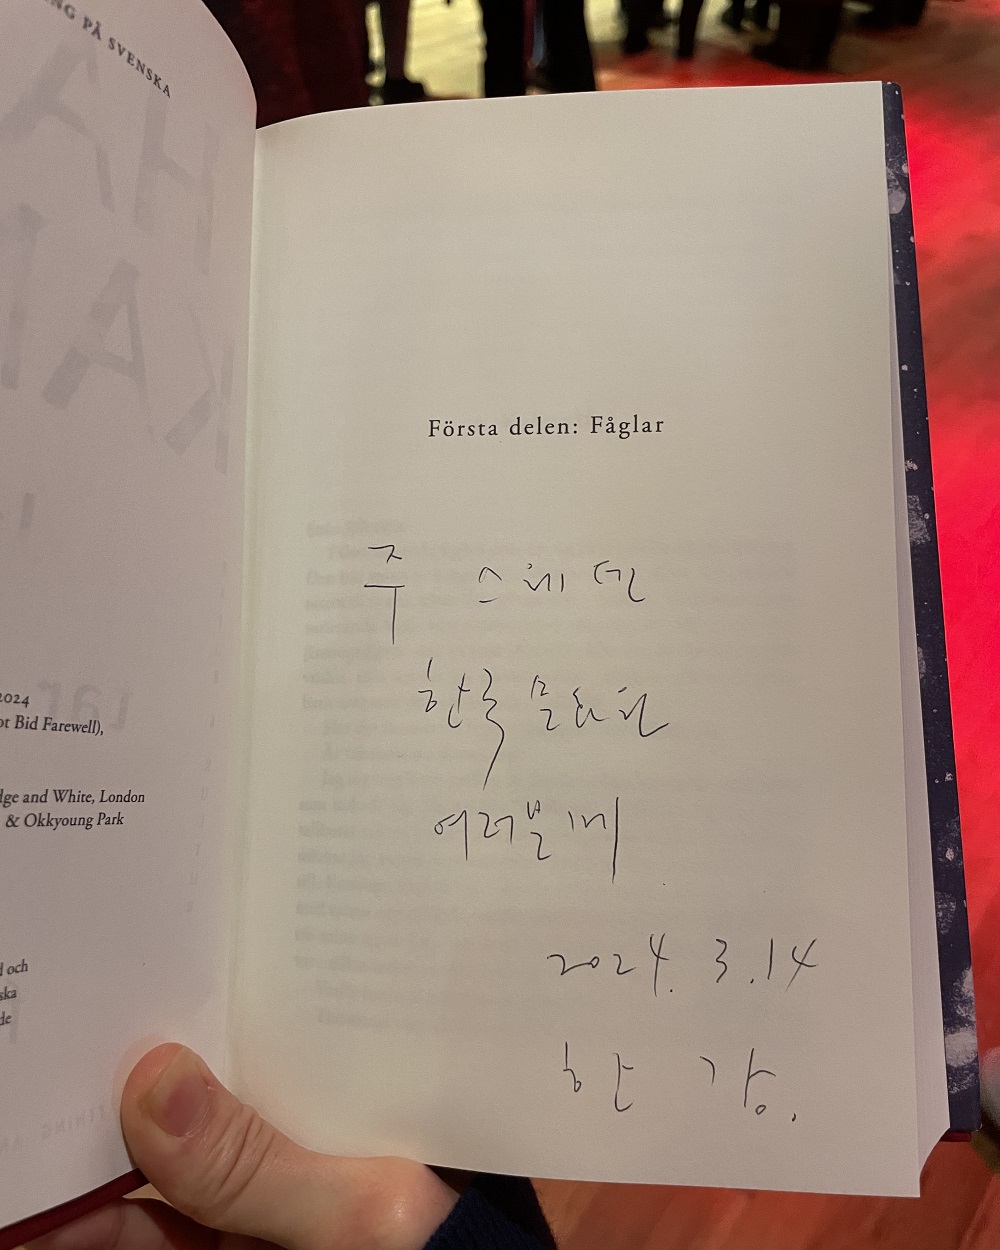 NG PÅ SVENSKA
2024
ot Bid Farewell),
dge and White, London
& Okkyoung Park
d och
ska
de
Första delen: Fåglar
주 스웨덴
한국 문화원
여러분께
2024. 3. 14
한 강.